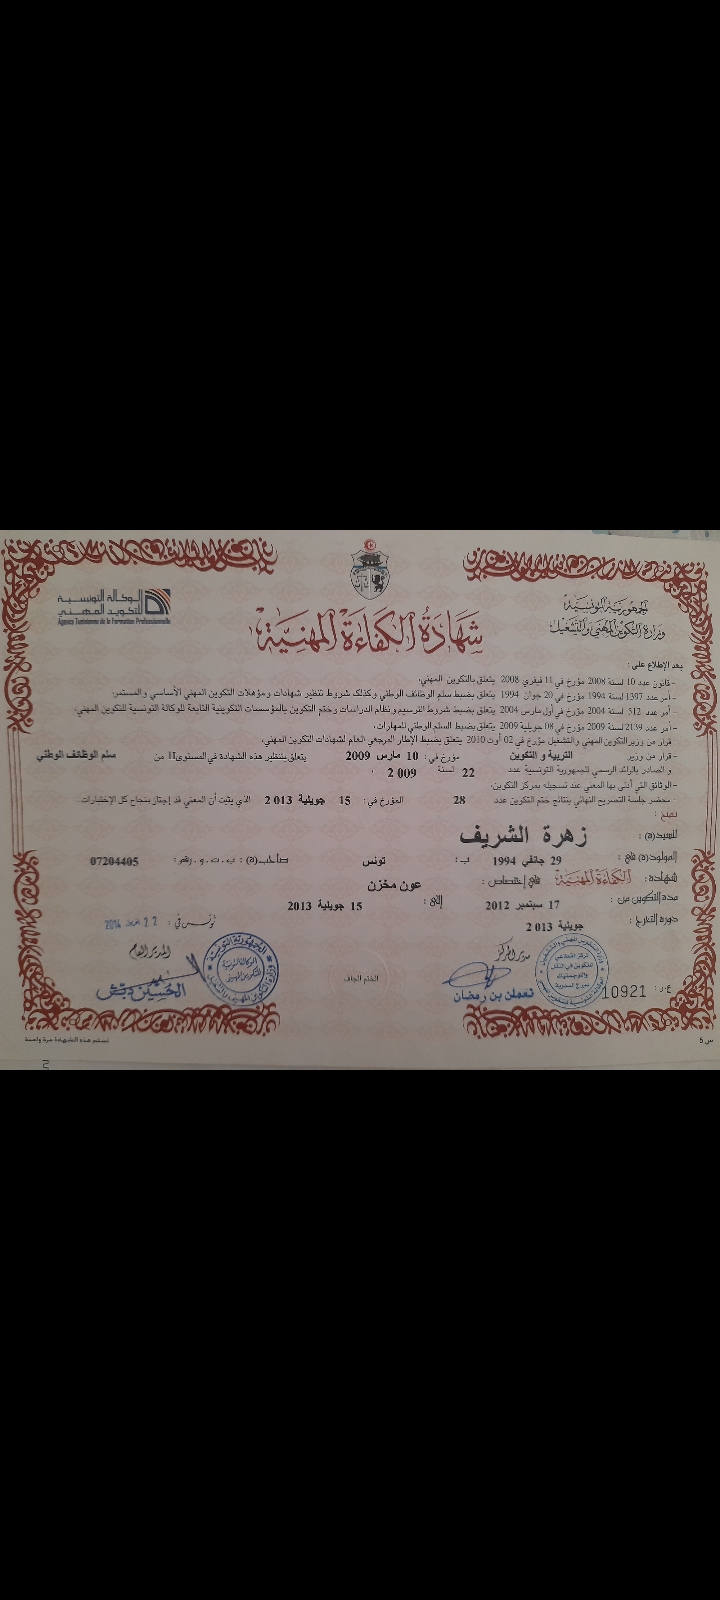 الجمهورية التونسية
وزارة التكوين المهني والتشغيل
الوكالة التونسية
للتكوين المهني
Agence Tunisienne de la Formation Professionnelle
شهادة الكفاءة المهنية
بعد الإطلاع على :
- قانون عدد 10 لسنة 2008 مؤرخ في 11 فيفري 2008 يتعلق بالتكوين المهني،
- أمر عدد 1397 لسنة 1994 مؤرخ في 20 جوان 1994 يتعلق بضبط سلم الوظائف الوطني وكذلك شروط تنظير شهادات ومؤهلات التكوين المهني الأساسي والمستمر،
- أمر عدد 512 لسنة 2004 مؤرخ في أول مارس 2004 يتعلق بضبط شروط الترسيم ونظام الدراسات وختم التكوين بالمؤسسات التكوينية التابعة للوكالة التونسية للتكوين المهني،
- أمر عدد 2139 لسنة 2009 مؤرخ في 08 جويلية 2009 يتعلق بضبط السلم الوطني للمهارات،
- قرار من وزير التكوين المهني والتشغيل مؤرخ في 02 أوت 2010 يتعلق بضبط الإطار المرجعي العام لشهادات التكوين المهني،
- قرار من وزير التربية و التكوين مؤرخ في : 10 مارس 2009 يتعلق بتنظير هذه الشهادة في المستوى II من سلم الوظائف الوطني
و الصادر بالرائد الرسمي للجمهورية التونسية عدد 22 لسنة 2009 ،
- الوثائق التي أدلى بها المعني عند تسجيله بمركز التكوين،
- محضر جلسة التصريح النهائي بنتائج ختم التكوين عدد 28 المؤرخ في : 15 جويلية 2013 الذي يثبت أن المعني قد إجتاز بنجاح كل الإختبارات.
للسيد(ة) : زهرة الشريف
المولود(ة) في : 29 جانفي 1994 ب : تونس صاحب(ة) : ب . ت . و . رقم : 07204405
شهادة : الكفاءة المهنية في إختصاص : عون مخزن
مدة التكوين من : 17 سبتمبر 2012 إلى : 15 جويلية 2013
دورة التخرج : جويلية 2013
تونس في : 22 2014
مدير المركز
المدير العام
نعمان بن رمضان
الختم الجاف
الحسين دبش
ع.ر : 10921
تسلم هذه الشهادة مرة واحدة
س 5